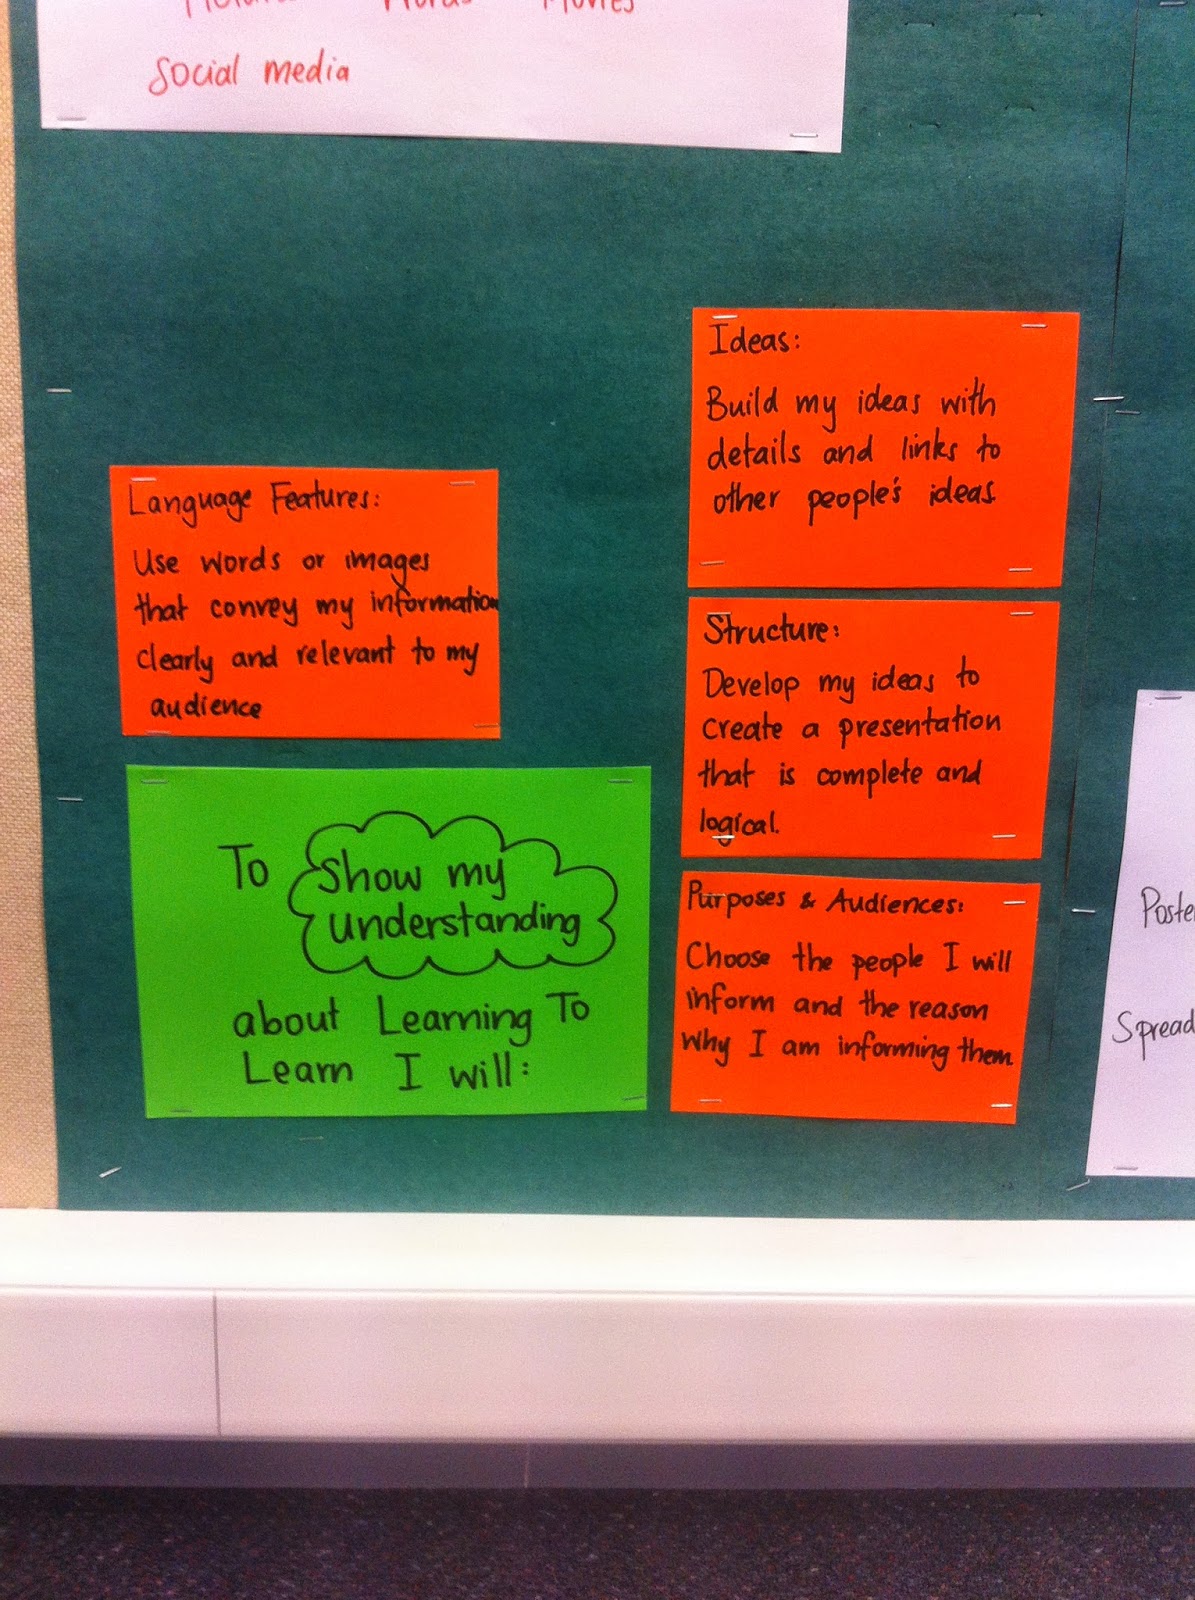 Words Movies
Social media
Language Features:
Use words or images
that convey my information
clearly and relevant to my
audience
To Show my
understanding
about Learning To
Learn I will:
Ideas:
Build my ideas with
details and links to
other people's ideas
Structure:
Develop my ideas to
create a presentation
that is complete and
logical.
Purposes & Audiences:
Choose the people I will
inform and the reason
why I am informing them
Poste
Spread